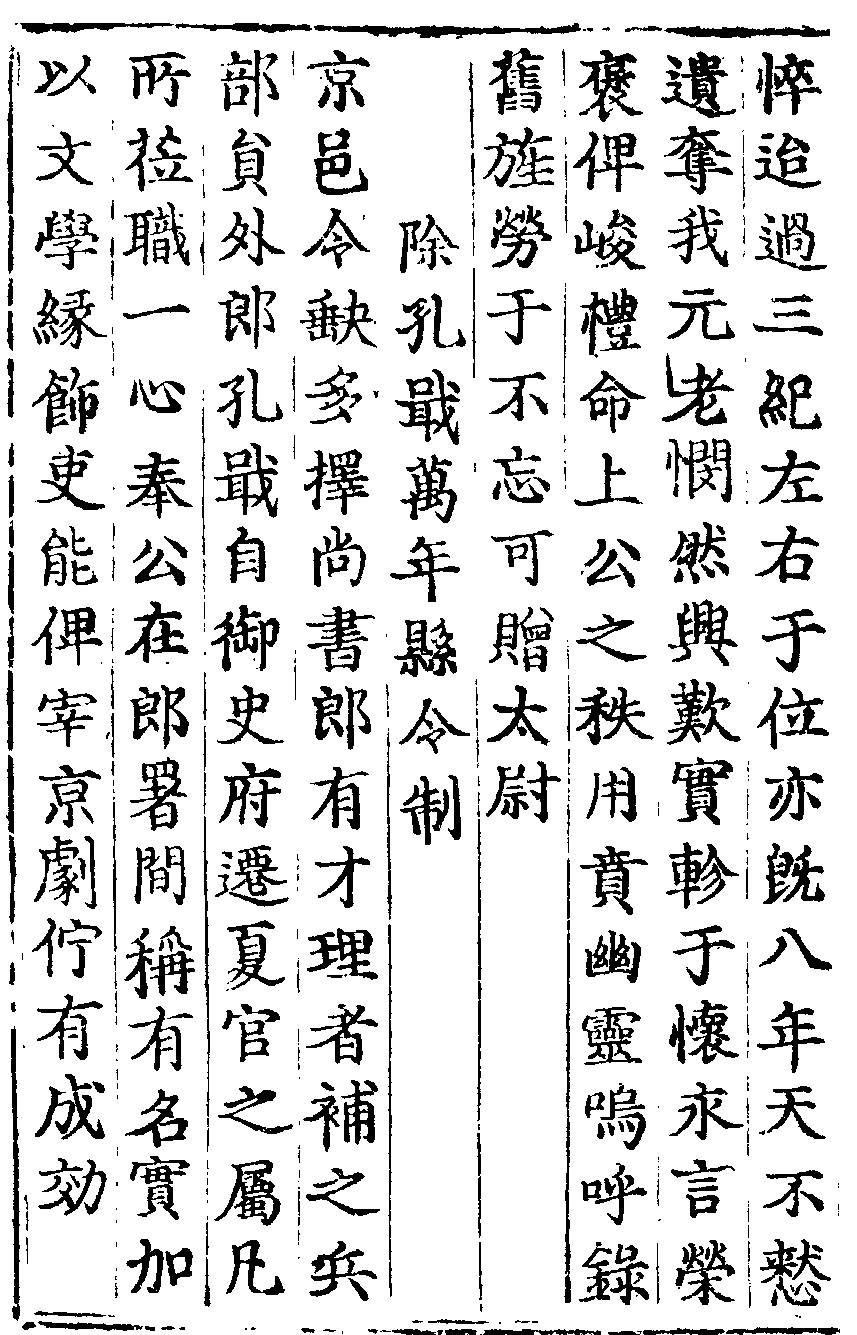 悴迨過三紀左右于位亦旣八年天不憖
遺奪我元老憫然興歎實軫于懷永言榮
襃俾峻禮命上公之秩用賁幽靈嗚呼錄
舊旌勞于不忘可贈太尉
除孔戢萬年縣令制
京邑令缺多擇尚書郎有才理者補之兵
部貟外郎孔戢自御史府遷夏官之屬凡
所莅職一心奉公在郎署間稱有名實加
以文學緣飾吏能俾宰京劇佇有成効